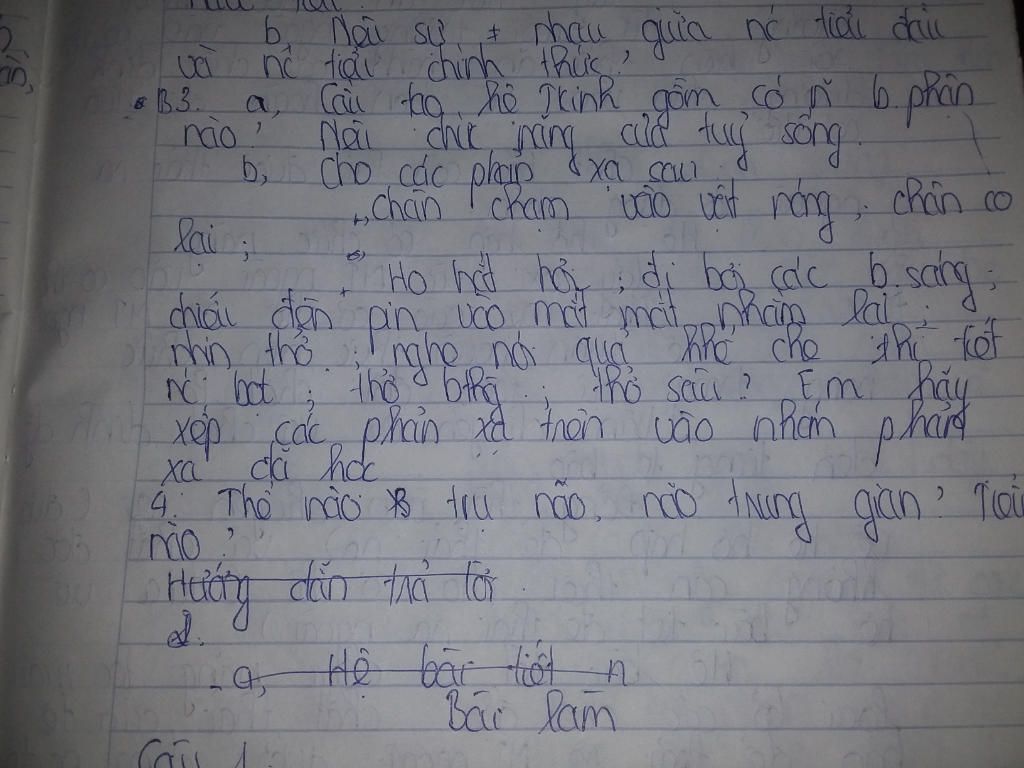 b, Nêu sự ≠ nhau giữa nć tiểu đầu
và nć tiểu chính thức?
B3. a, Cấu tạo hệ TKinh gồm có ~ b.phận
nào? Nêu chức năng của tuỷ sống.
b, cho các phản xạ sau
chân chạm vào vật nóng, chân co
lại;
Ho hắt hơi; đi bơi các b.sáng;
chiếu đèn pin vào mắt mắt nhắm lại;
nhịn thở; nghe nói quả khế chua thì tiết
nć bọt; thở bthg; thở sâu? Em hãy
xếp các phản xạ trên vào nhóm phản
xạ đã học
4. Thế nào trụ não, não trung gian? Tiểu
não?
Hướng dẫn trả lời.
a, Hệ bài tiết
Bài làm
Câu 1